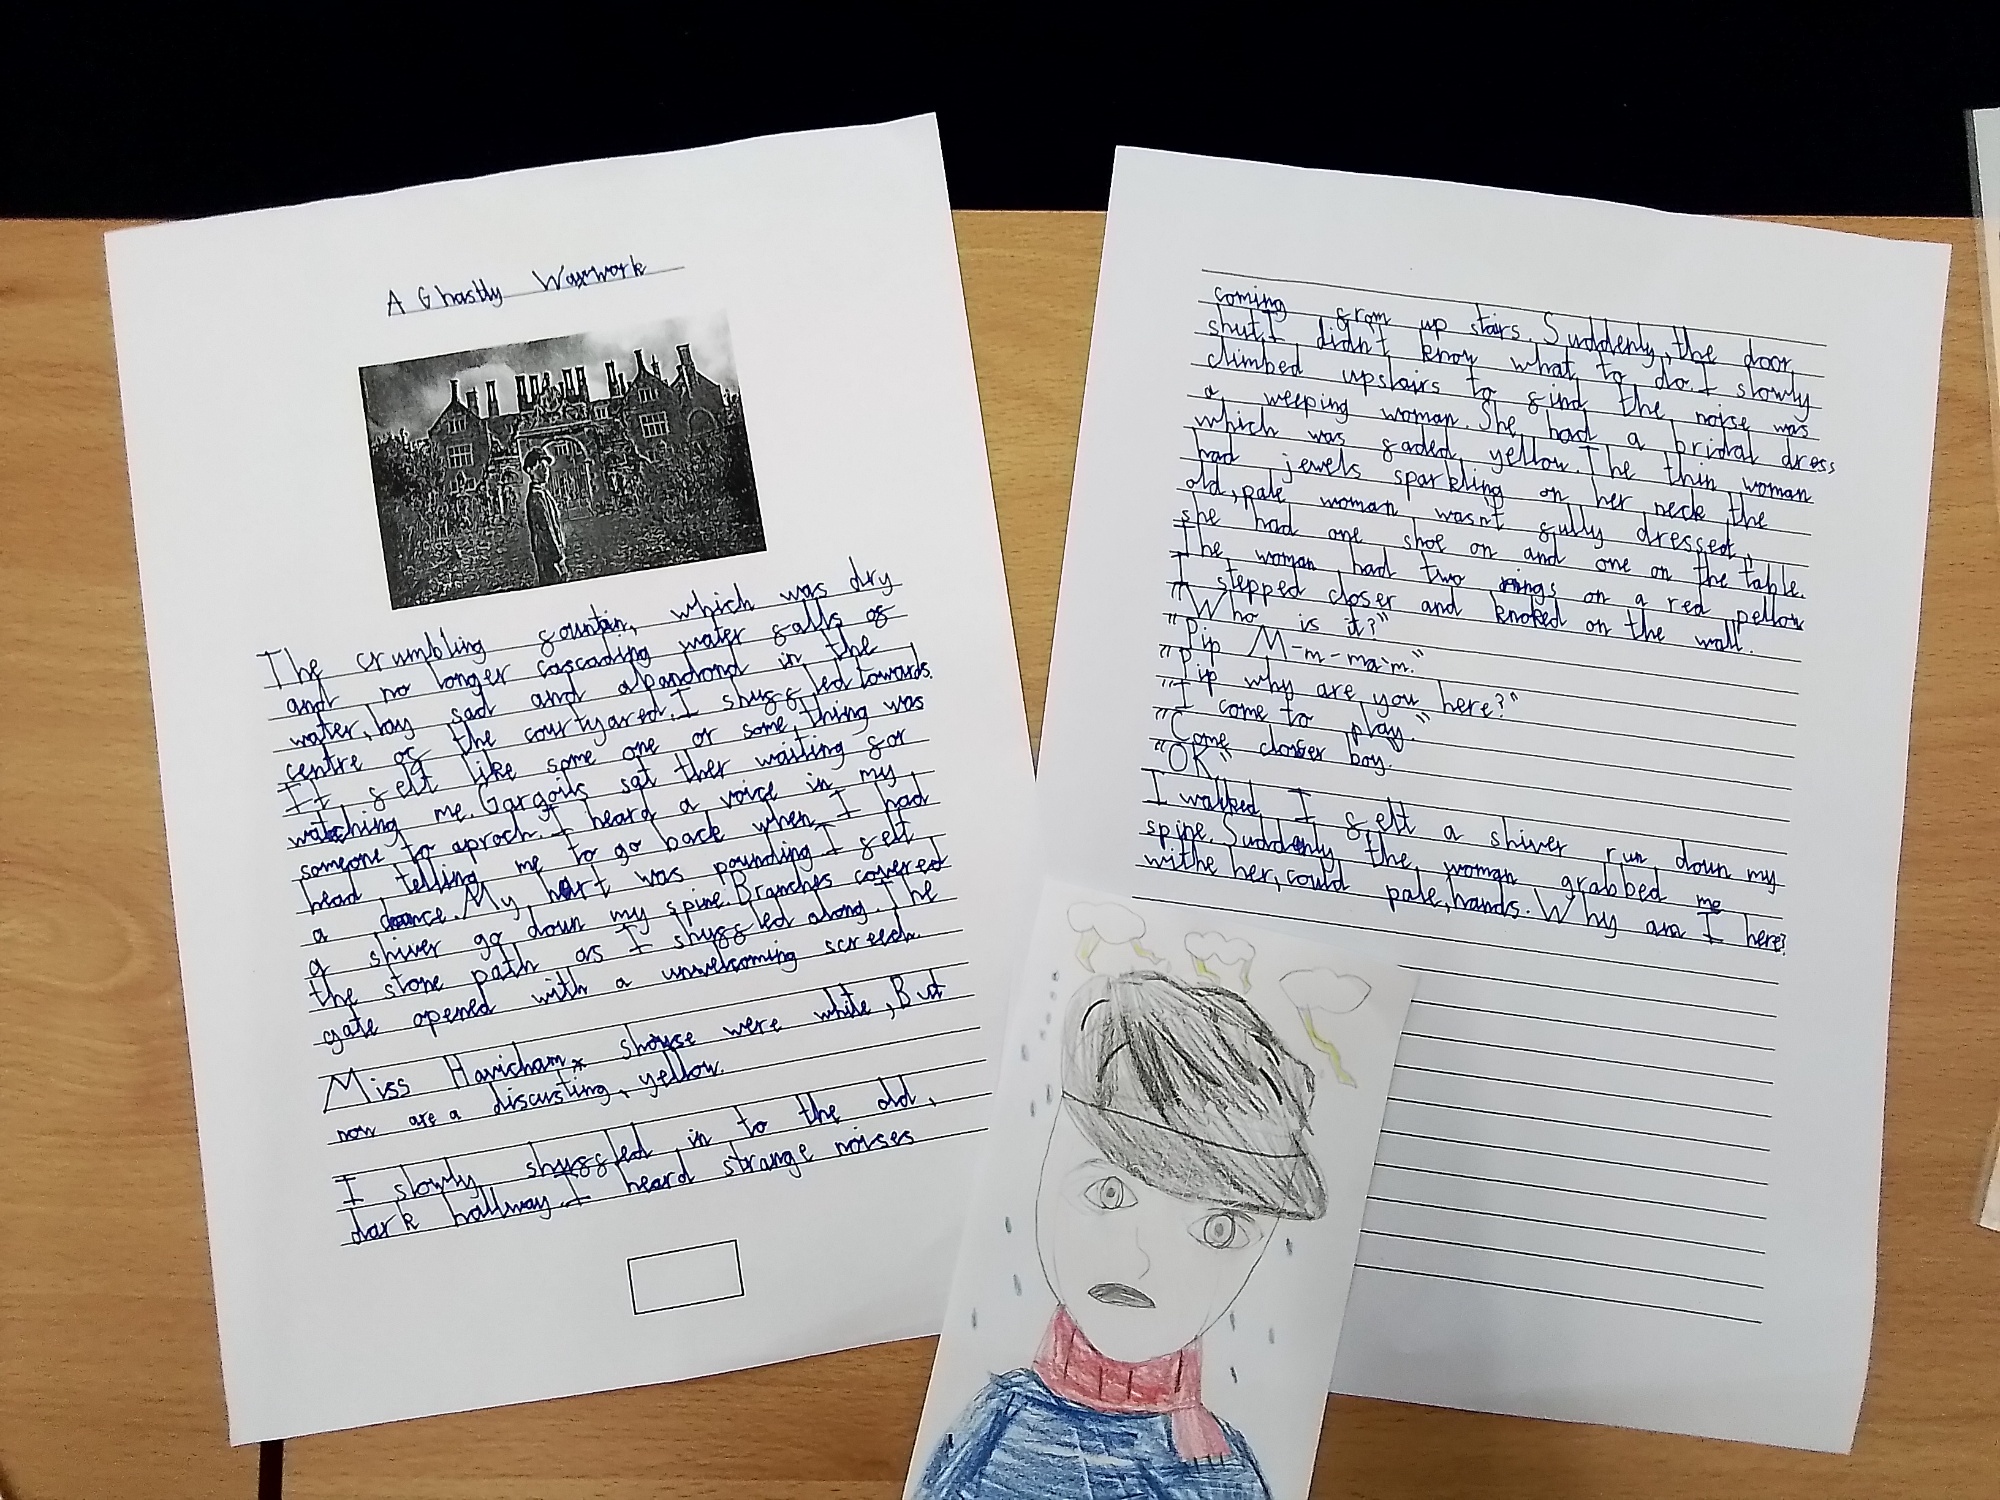 A Ghastly Waxwork
The crumbling fountain, which was dry
and no longer cascading water falls of
water, lay sad and abandond in the
centre of the courtyared. I shuffled towards.
It felt like some one or some thing was
watching me. Gargoils sat ther waiting for
someone to aproch. I heard a voice in my
head telling me to go back when I had
a chance. My hart was pounding I felt
a shiver go down my spine. Branches covered
the stone path as I shuffled along. The
gate opened with a unwelcoming screech.
Miss Havicham, shouse were white, But
now are a discusting, yellow.
I slowly shuffled in to the old,
dark hallway. I heard strange noises
coming from up stairs. Suddenly, the door
shut. I didn't know what to do. I slowly
climbed upstairs to find the noise was
a weeping woman. She had a bridal dress
which was faded yellow. The thin woman
had jewels sparkling on her neck the
old, pale woman wasnt fully dressed,
she had one shoe on and one on the table.
The woman had two rings on a red pellow
I stepped closer and knoked on the wall.
"Who is it?"
"Pip M-m-ma'm."
"Pip why are you here?"
"I come to play."
"Come closer boy.
"OK"
I walked I felt a shiver run down my
spine. Suddenly, the woman grabbed me
withe her, could pale, hands. Why am I here?